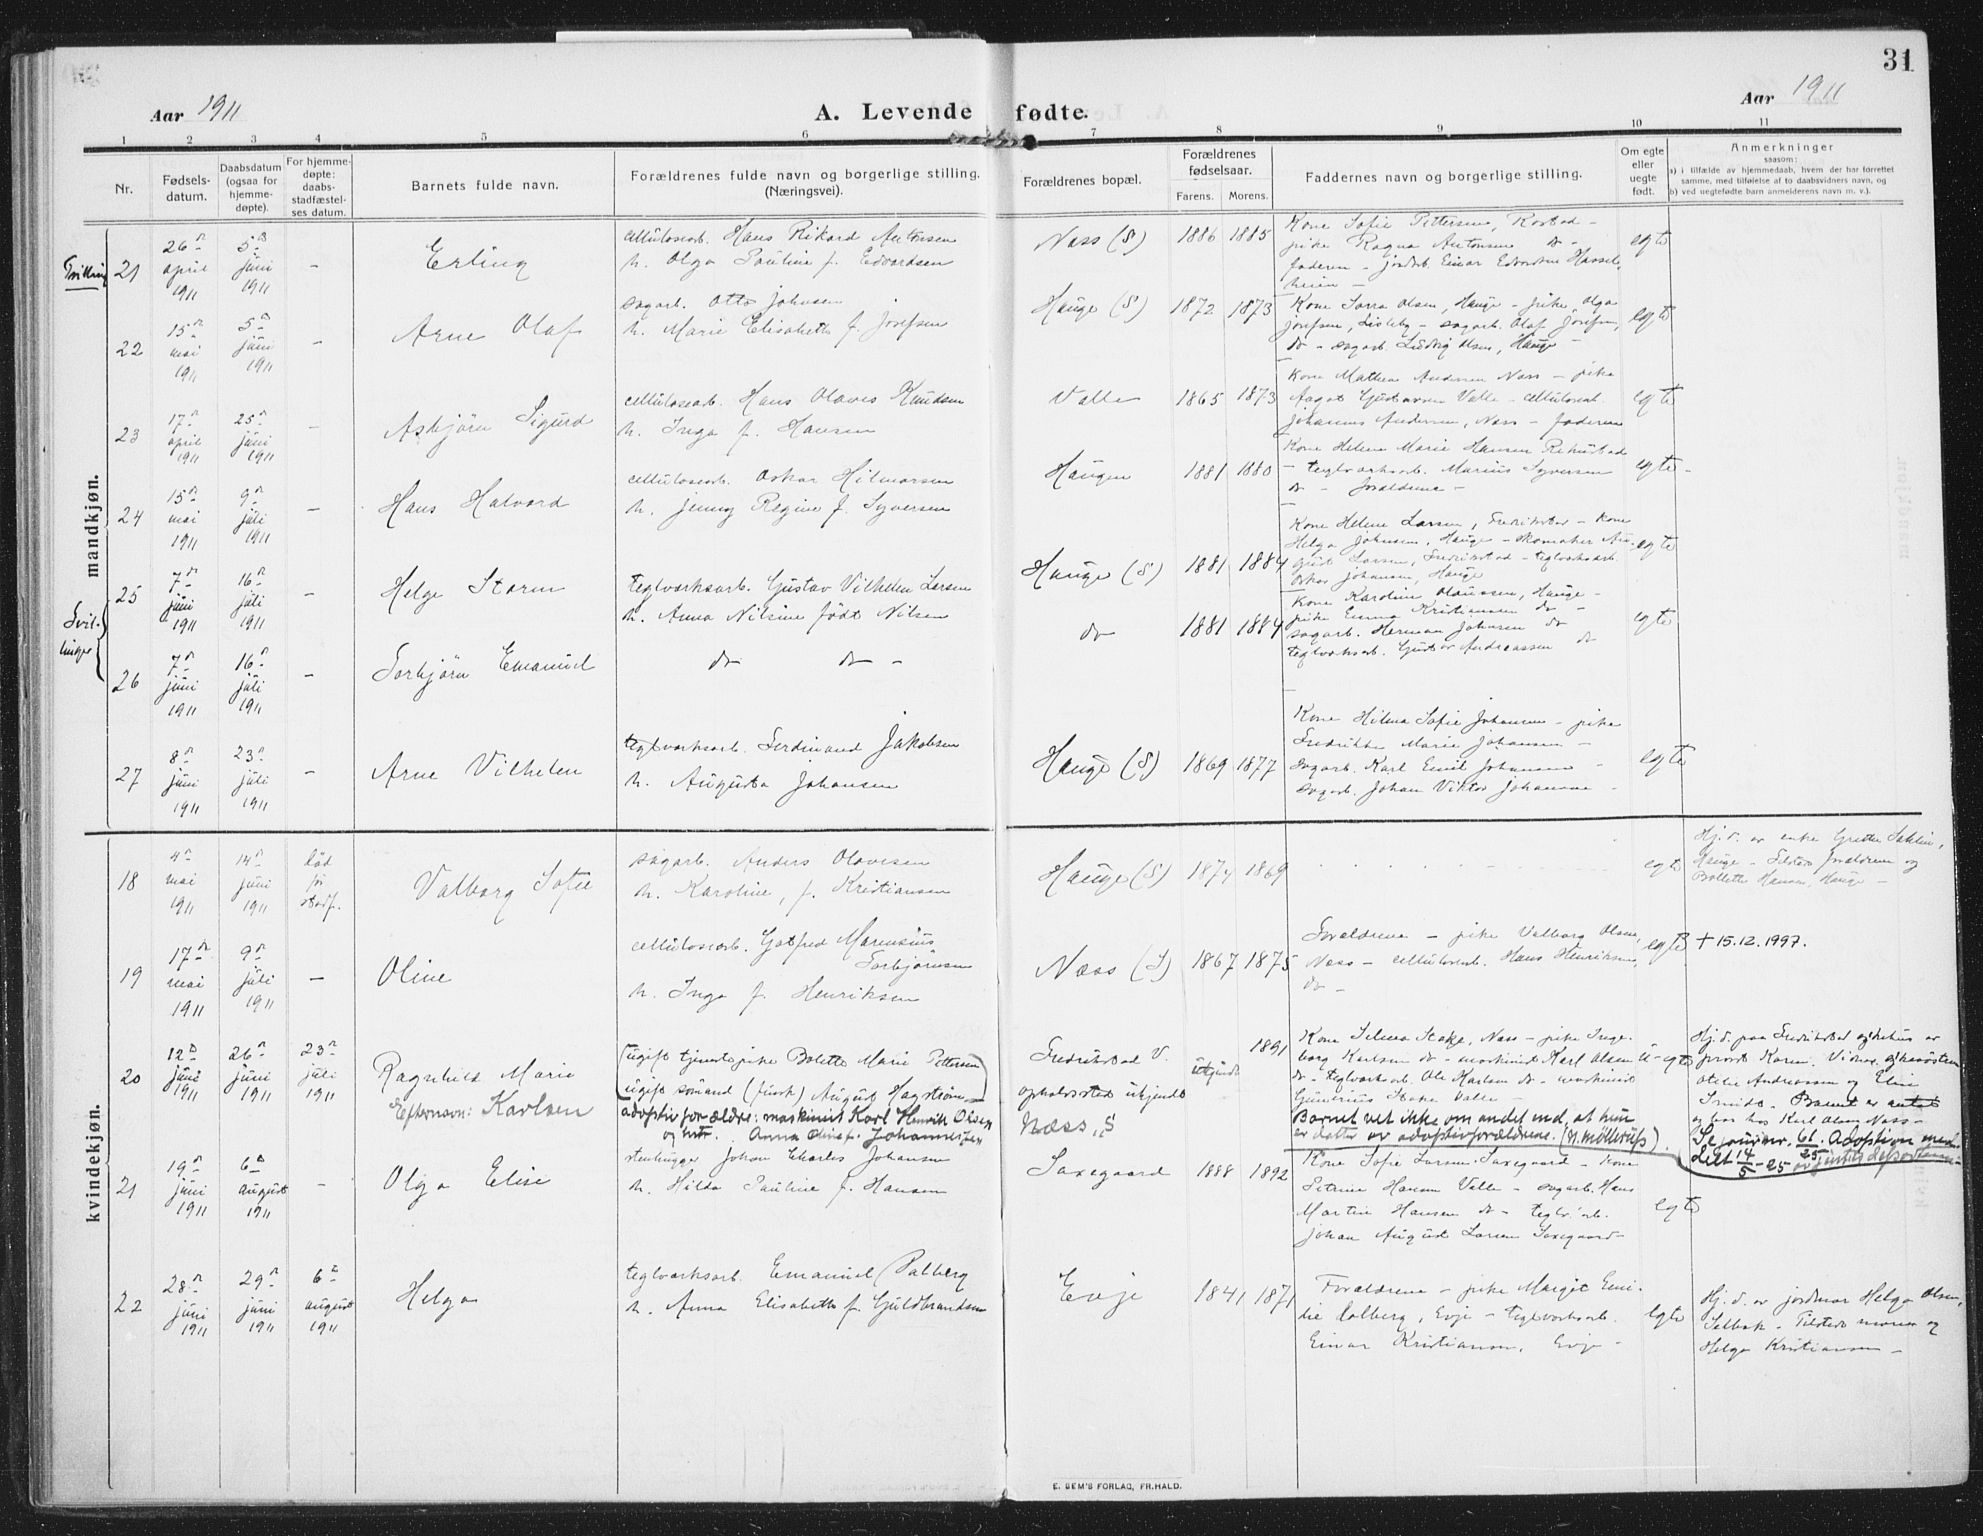 31
Aar 1911
A. Levende fødte.
Aar 1911
1 2 3 4 5 6 7 8 9 10 11
Nr.
Fødsels-
datum.
Daabsdatum
(ogsaa for
hjemme-
døpte).
For hjemme-
døpte:
daabs-
stadfæstel-
ses datum.
Barnets fulde navn.
Forældrenes fulde navn og borgerlige stilling.
(Næringsvei).
Forældrenes bopæl.
Forældrenes
fødselsaar.
Farens. Morens.
Faddernes navn og borgerlige stilling.
Om egte
eller
uegte
født.
Anmerkninger
saasom:
a) i tilfælde av hjemmedaab, hvem der har forrettet
samme, med tilføielse af to daabsvidners navn, og
b) ved uegtefødte barn anmelderens navn m. v.).
mandkjøn.
Tvilling
21
26
april
1911
5
juni
1911
-
Erling
cellulosearb. Hans Rikard Antonsen
h. Olga Pauline f. Edvardsen
Næss (S)
1886 1885
Kone Sofie Pettersen,
pike Ragna Antonsen do -
faderen - jordb. Einar Edvardsen Hassel-
heien -
egte
22
15
mai
1911
5
juni
1911
-
Arne Olaf
sagarb. Otto Johnsen
h. Marie Elisabeth f. Josefsen
Hauge (S)
1872 1873
Kone Olsen, Hauge - pike Olga
Josefsen, Lisleby - sagarb. Olaf Josefsen,
do - sagarb. Ludvig Olsen, Hauge -
egte
23
17
april
1911
25
juni
1911
-
Asbjörn Sigurd
cellulosearb. Hans Olaves Knudsen
h. Inga f. Hansen
Valle
1865 1873
Kone Mathea Andersen Næss - pike
Aagot Gustavsen Valle - cellulosearb.
Johannes Andersen, Næss - faderen
egte
24
15
mai
1911
9
juli
1911
-
Hans Halvard
cellulosearb. Oskar Hilmarsen
h. Jenny Regine f. Syversen
Haugen
1881 1880
Kone Helene Marie Hansen
- teglverksarb. Marius Syversen
do - forældrene -
egte -
25
7
juni
1911
16
juli
1911
-
Helge Storm
teglværksarb. Gustav Vilhelm Larsen
h. Anna Nilsine född Nilsen
Hauge (S)
1881 1884
Kone Helene Larsen, Fredrikstad - kone
Helga Johansen, Hauge - skomaker Au-
gust Larsen, Fredrikstad - teglverksarb.
Oskar Johansen, Hauge
egte
Tvil-
linger
26
7
juni
1911
16
juli
1911
-
Torbjörn Emanuel
do do -
do
1881 1884
Kone Karoline Olaussen, Hauge -
pike Emma Kristiansen do -
sagarb. Herman Johansen do
teglverksarb. Gustav Andreassen do
egte
27
8
juni
1911
23
juli
1911
-
Arne Vilhelm
teglværksarb. Ferdinand Jakobsen
h. Augusta Johansen
Hauge (S)
1869 1877
Kone Hilma Sofie Johansen - pike
Fredrikke Marie Johansen -
sagarb. Karl Emil Johansen -
sagarb. Johan Viktor Johansen -
egte
kvindekjøn.
18
4
mai
1911
14
juni
1911
död
för
stadf.
Valborg Sofie
sagarb. Anders Olavesen
h. Karoline, f. Kristiansen
Hauge (S)
1874 1869
egte
Hj. d. av enke Grethe
Hauge - Tilstede forældrene og
Bollette Hansen, Hauge -
19
17
mai
1911
9
juli
1911
-
Oline
cellulosearb. Gotfred Marensius
Torbjörnsen
h. Inga f. Henriksen
Næss (S)
1867 1875
Forældrene - pike Valborg Olsen,
Næss - cellulosearb. Hans Henriksen,
do -
egte
+ 15.12.1997.
20
12
juni
1911
26
juni
1911
23
juli
1911
Ragnhild Marie
Efternavn: Karlsen
(ugift tjenestepike Bolette Marie Pettersen
ugift sömand (svensk) August Hagström
adoptivforældre: maskinist Karl Henrik Olsen
og hustr. Anna Olina f. Johannessen
Fredrikstad V.
opholdssted ukjendt
Næss, S
ukjendt
1891
Kone Selma Stokje, Næss - pike Inge-
borg Karlsen do - maskinist Karl Olsen
do - teglverksarb. Ole Karlsen do - maskinist
Gunerius Stoke Valle -
Barnet vet ikke om andet end, at hun
er datter av adoptivforældrene. (N. Mölleruss).
U-egte
Hj. d. paa Fredrikstad sykehus av
provst Koren. Vidner
Otilie Andreassen og Elise
Smids. Barnet er antat
og bor hos Karl Olsen Næss -
Se journr. 61/25. Adoption med-
delt 14/5-25 av justisdepartem-
21
19
juni
1911
6
august
1911
-
Olga Elise
stenhugger Johan Charles Johansen
h. Hilda Pauline f. Hansen
Saxegaard
1888 1892
Kone Sofie Larsen, Saxegaard - kone
Petrine Hansen Valle - sagarb. Hans
Martin Hansen do - teglv. arb.
Johan August Larsen Saxegaard -
egte
22
28
juni
1911
29
juni
1911
6
august
1911
Helga
teglværksarb. Emanuel Dalberg
h. Anna Elisabeth f. Guldbrandsen
Evje
1841 1871
Forældrene - pike Margit Emi-
lie Dalberg, Evje - teglverksarb.
Einar Kristiansen, Evje -
egte
Hj. d. av jordmor Helga Olsen,
Selbak - Tilstede moren og
Helga Kristiansen -
E. SEM'S FORLAG, FR.HALD.